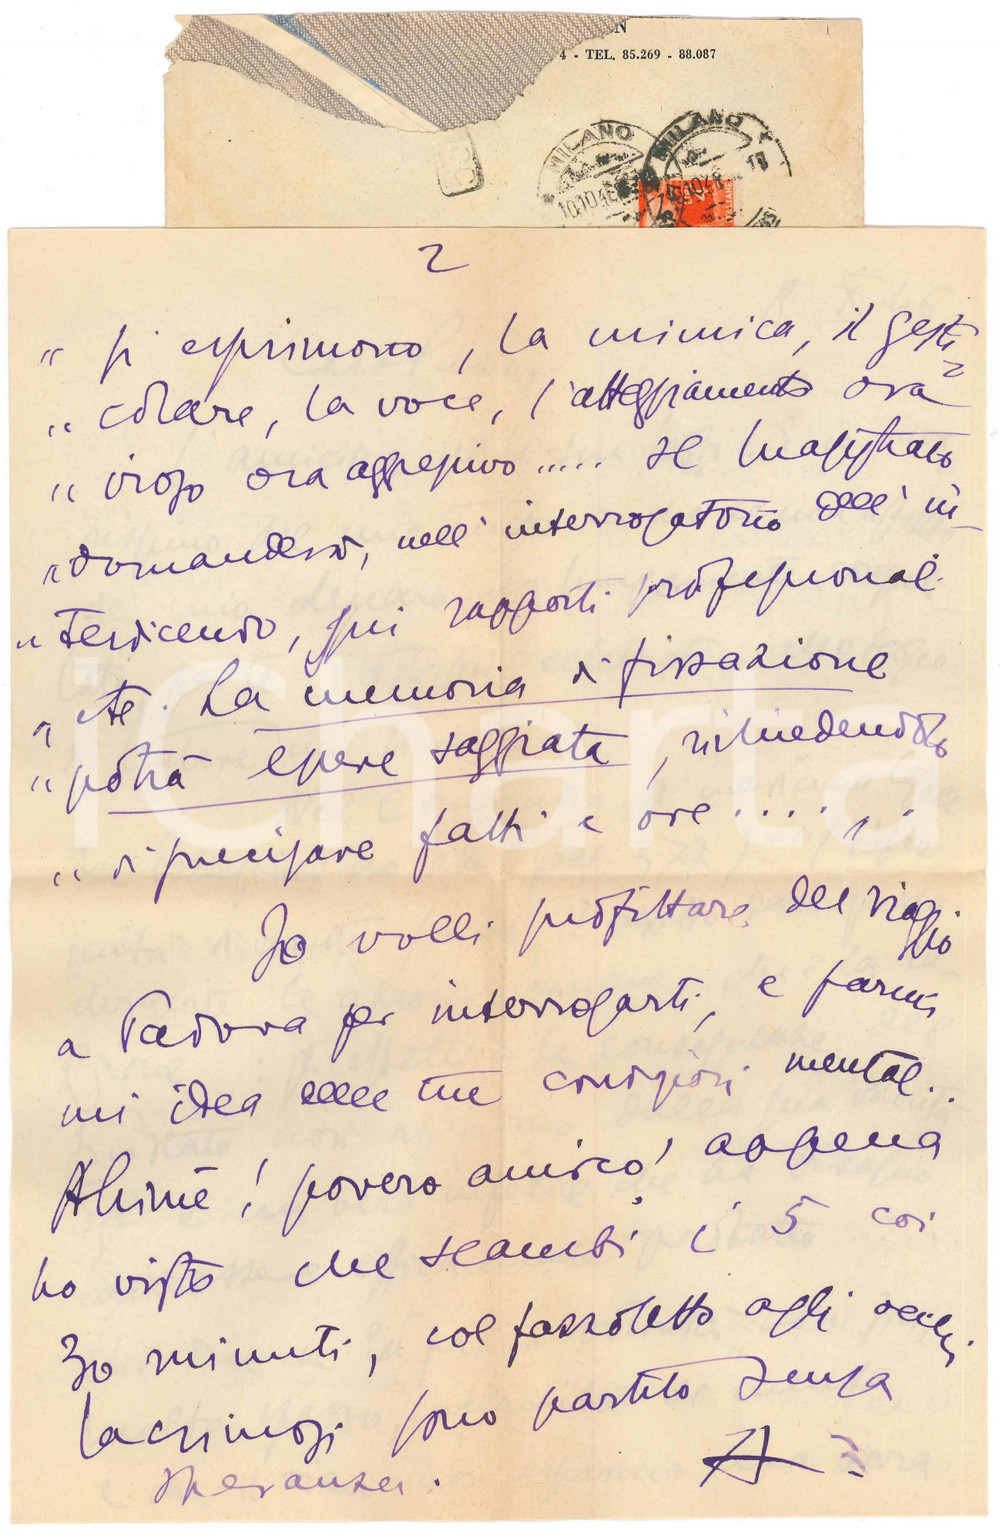 N
4 - TEL. 85.269 - 88.087
MILANO
MILANO
10.10.46
2
" si esprimono, la mimica, il gesti=
" colare, la voce, l'atteggiamento ora
" iroso ora aggressivo ..... Il Magistrato
" domanderà, nell'interrogatorio dell'in-
" terdicendo, sui rapporti professionali
" etc. La memoria di fissazione
" potrà essere saggiata, richiedendolo
" di precisare fatti e ore ......
Io volli profittare del viaggio
a Padova per interrogarti, e farmi
mi idea delle tue condizioni mentali..
Ahimè! povero amico! appena
ho visto che scambi i 5 coi
30 minuti, col fazzoletto agli occhi
lacrimosi sono partito senza
speranza.
iCharta